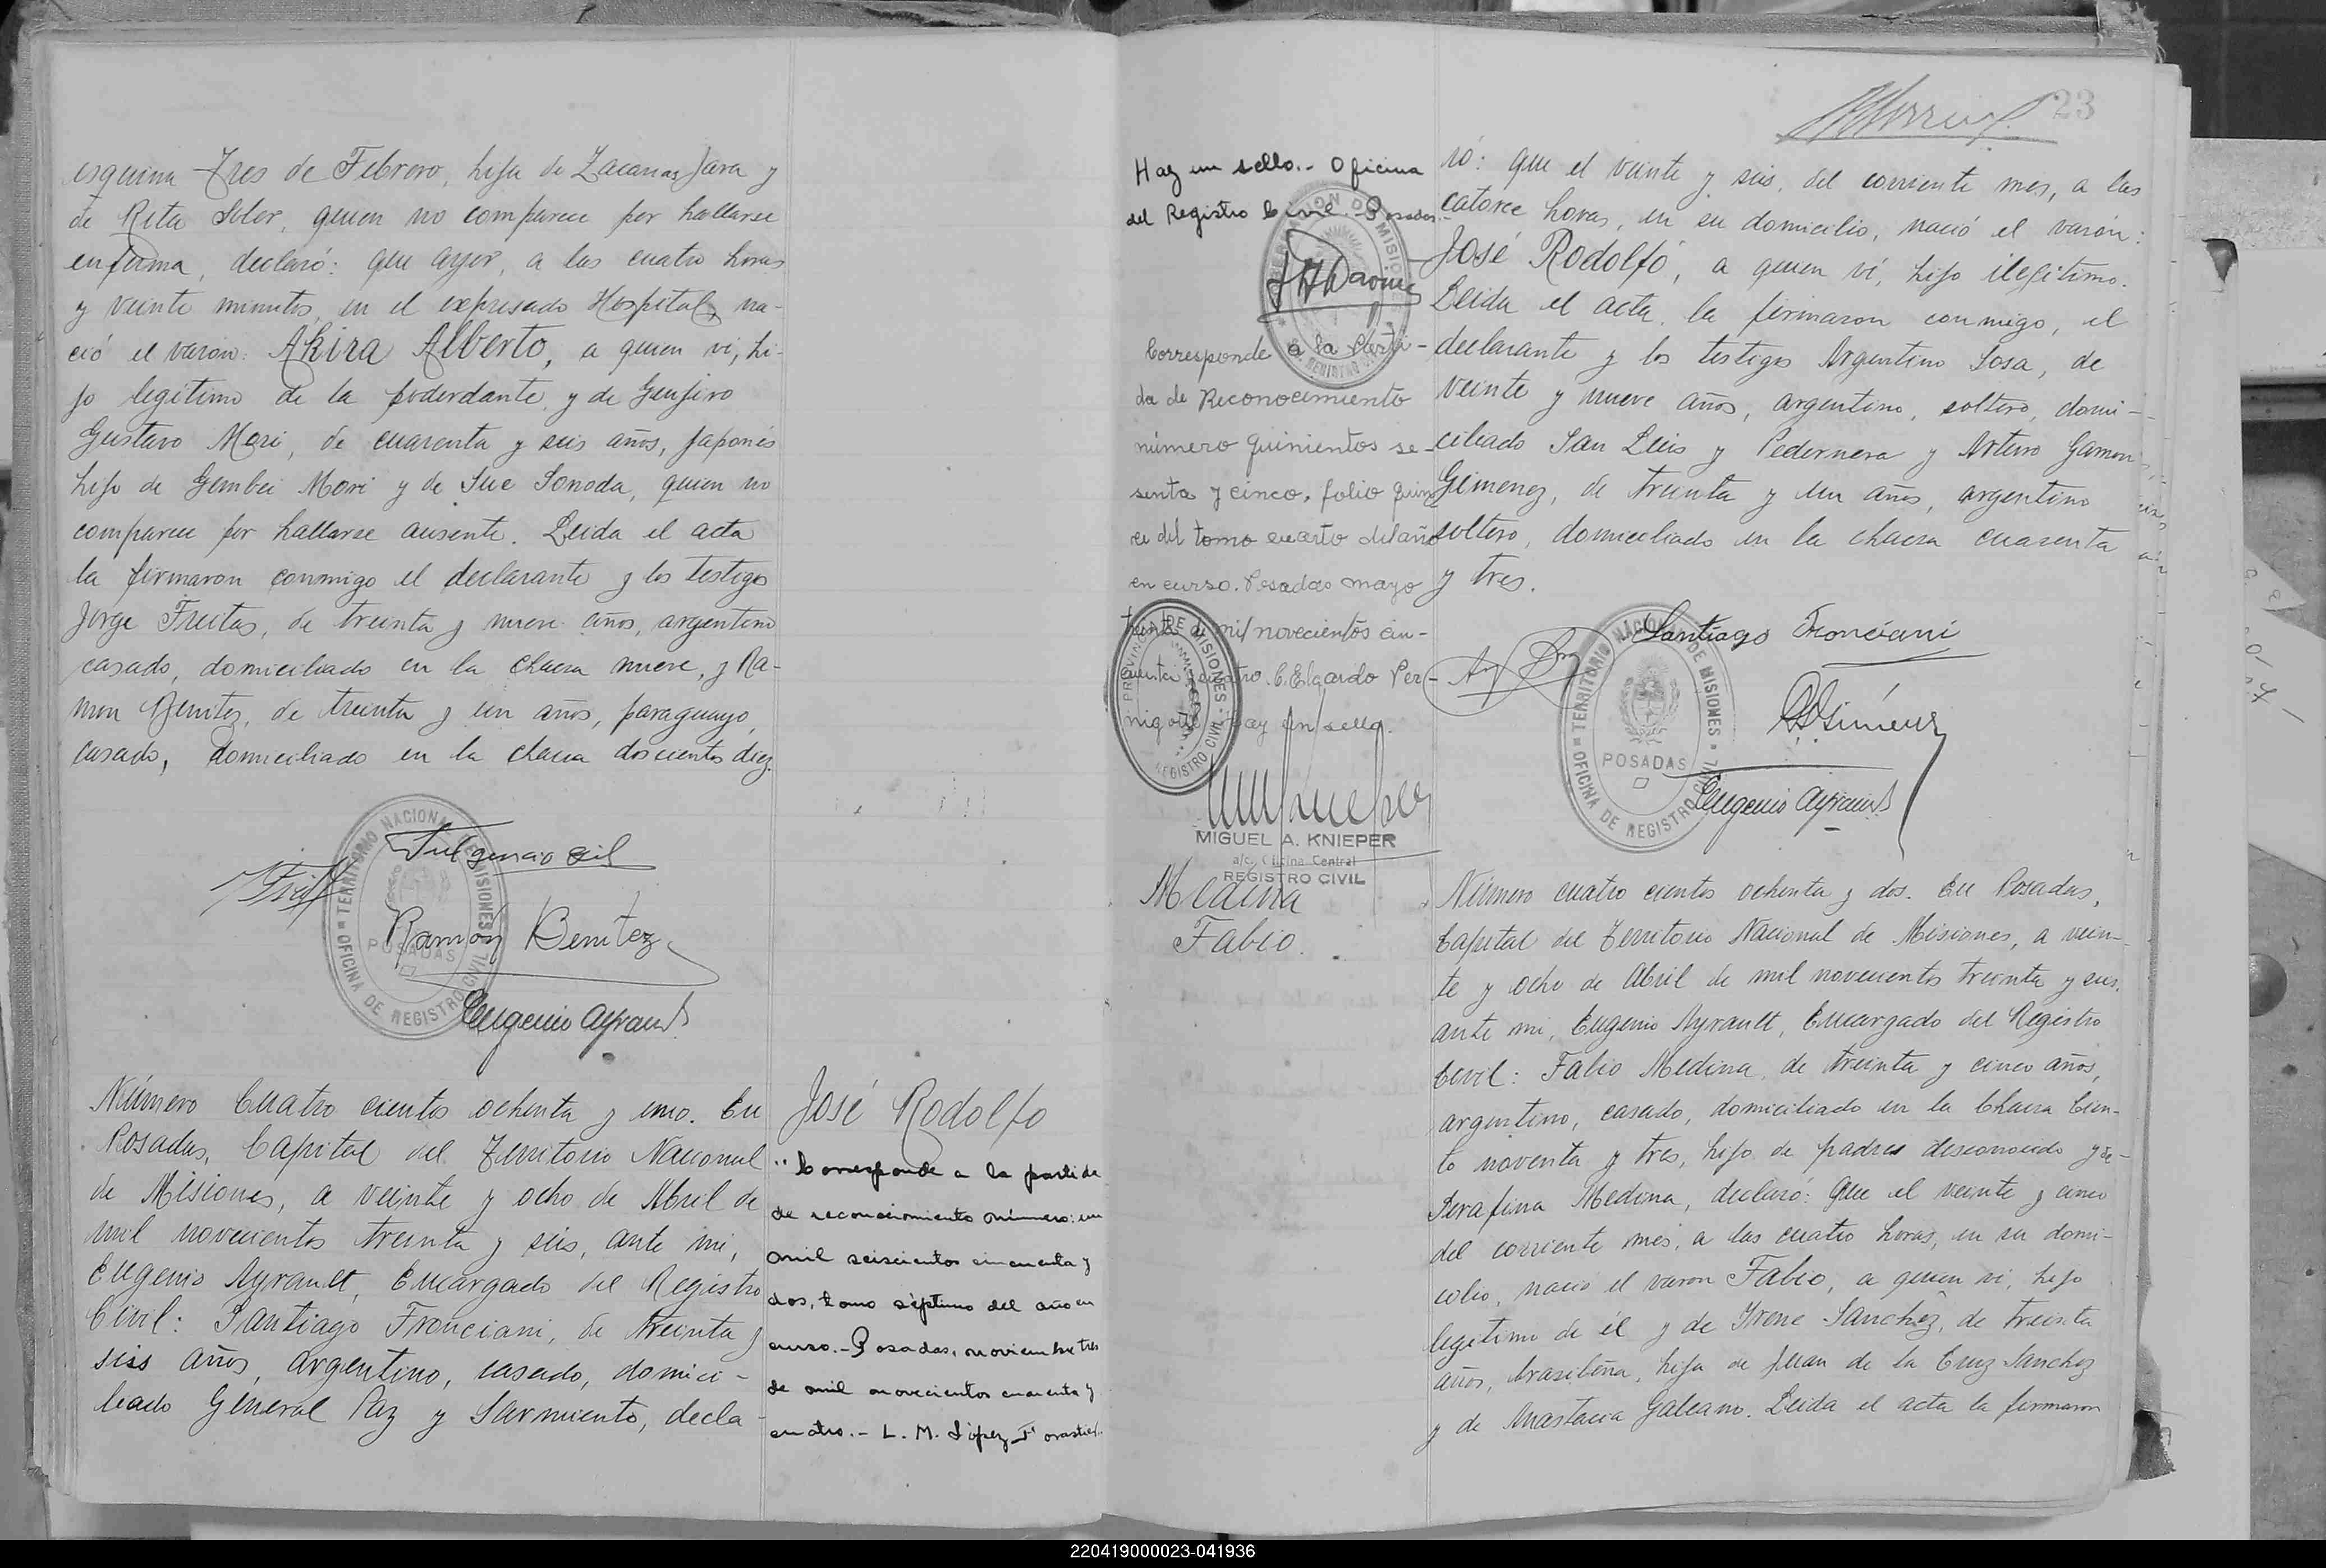 esquina Tres de Febrero, hija de Zacarias Jara y
de Rita Soler, quien no comparece por hallarse
enferma, declaró: que ayer, a las cuatro horas
y veinte minutos, en el expresado Hospital, na-
ció el varon: Akira Alberto, a quien vi, hi-
jo legitimo de la poderdante y de Genjiro
Gustavo Mori, de cuarenta y seis años, japonés
hijo de Gembei Mori y de Sue Sonoda, quien no
comparece por hallarse ausente. Leida el acta
la firmaron conmigo el declarante y los testigos
Jorge Freitas, de treinta y nueve años, argentino
casado, domiciliado en la chacra nueve, y Ra-
mon Benitez, de treinta y un años, paraguayo,
casado, domiciliado en la chacra doscientos diez.
TERRITORIO NACIONAL DE MISIONES
OFICINA DE REGISTRO CIVIL
POSADAS
Fulgencio Gil
Ramón Benitez
Eugenio Ayrault
Número Cuatro cientos ochenta y uno. En
Posadas, Capital del Territorio Nacional
de Misiones, a veinte y ocho de Abril de
mil novecientos treinta y seis, ante mi,
Eugenio Ayrault, Encargado del Registro
Civil: Santiago Fronciani, de treinta y
seis años, argentino, casado, domici-
liado General Paz y Sarmiento, decla-
José Rodolfo
"Corresponde a la partida
de reconocimiento número: un
mil seiscientos cincuenta y
dos, tomo séptimo del año en
curso.- Posadas, noviembre tres
de mil novecientos cuarenta y
cuatro.- L. M. López Forastier.
23
Hay un sello.- Oficina
del Registro Civil.-Posadas.-
Corresponde a la Parti-
da de Reconocimiento
número quinientos se-
senta y cinco, folio quin
ce del tomo cuarto del año
en curso. Posadas mayo
treinta de mil novecientos cin-
cuenta y cuatro. C. Elgardo Per-
nigotti Hay un sello.
PROVINCIA DE MISIONES
REGISTRO CIVIL
MIGUEL A. KNIEPER
a/c. Oficina Central
REGISTRO CIVIL
ró: que el veinte y seis, del corriente mes, a las
catorce horas, en su domicilio, nació el varón:
José Rodolfo, a quien ví, hijo ilegítimo.
Leida el acta, la firmaron conmigo, el
declarante y los testigos Argentino Sosa, de
veinte y nueve años, argentino, soltero, domi-
ciliado San Luis y Pedernera y Arturo Gamon
Gimenez, de treinta y un años, argentino
soltero, domiciliado en la chacra cuarenta
y tres.
Santiago Fronciani
TERRITORIO NACIONAL DE MISIONES
OFICINA DE REGISTRO CIVIL
POSADAS
Eugenio Ayrault
Medina
Fabio.
Número cuatro cientos ochenta y dos. En Posadas,
Capital del Territorio Nacional de Misiones, a vein-
te y ocho de Abril de mil novecientos treinta y seis,
ante mi, Eugenio Ayrault, Encargado del Registro
Civil: Fabio Medina, de treinta y cinco años,
argentino, casado, domiciliado en la Chacra Cien-
to noventa y tres, hijo de padres desconocido y de
Serafina Medina, declaró: Que el veinte y cinco
del corriente mes, a las cuatro horas, en su domi-
cilio, nació el varon Fabio, a quien vi, hijo
legitimo de él y de Irene Sanchez, de treinta
años, brasileña, hija de Juan de la Cruz Sanchez
y de Anastacia Galeano. Leida el acta la firmaron
220419000023-041936